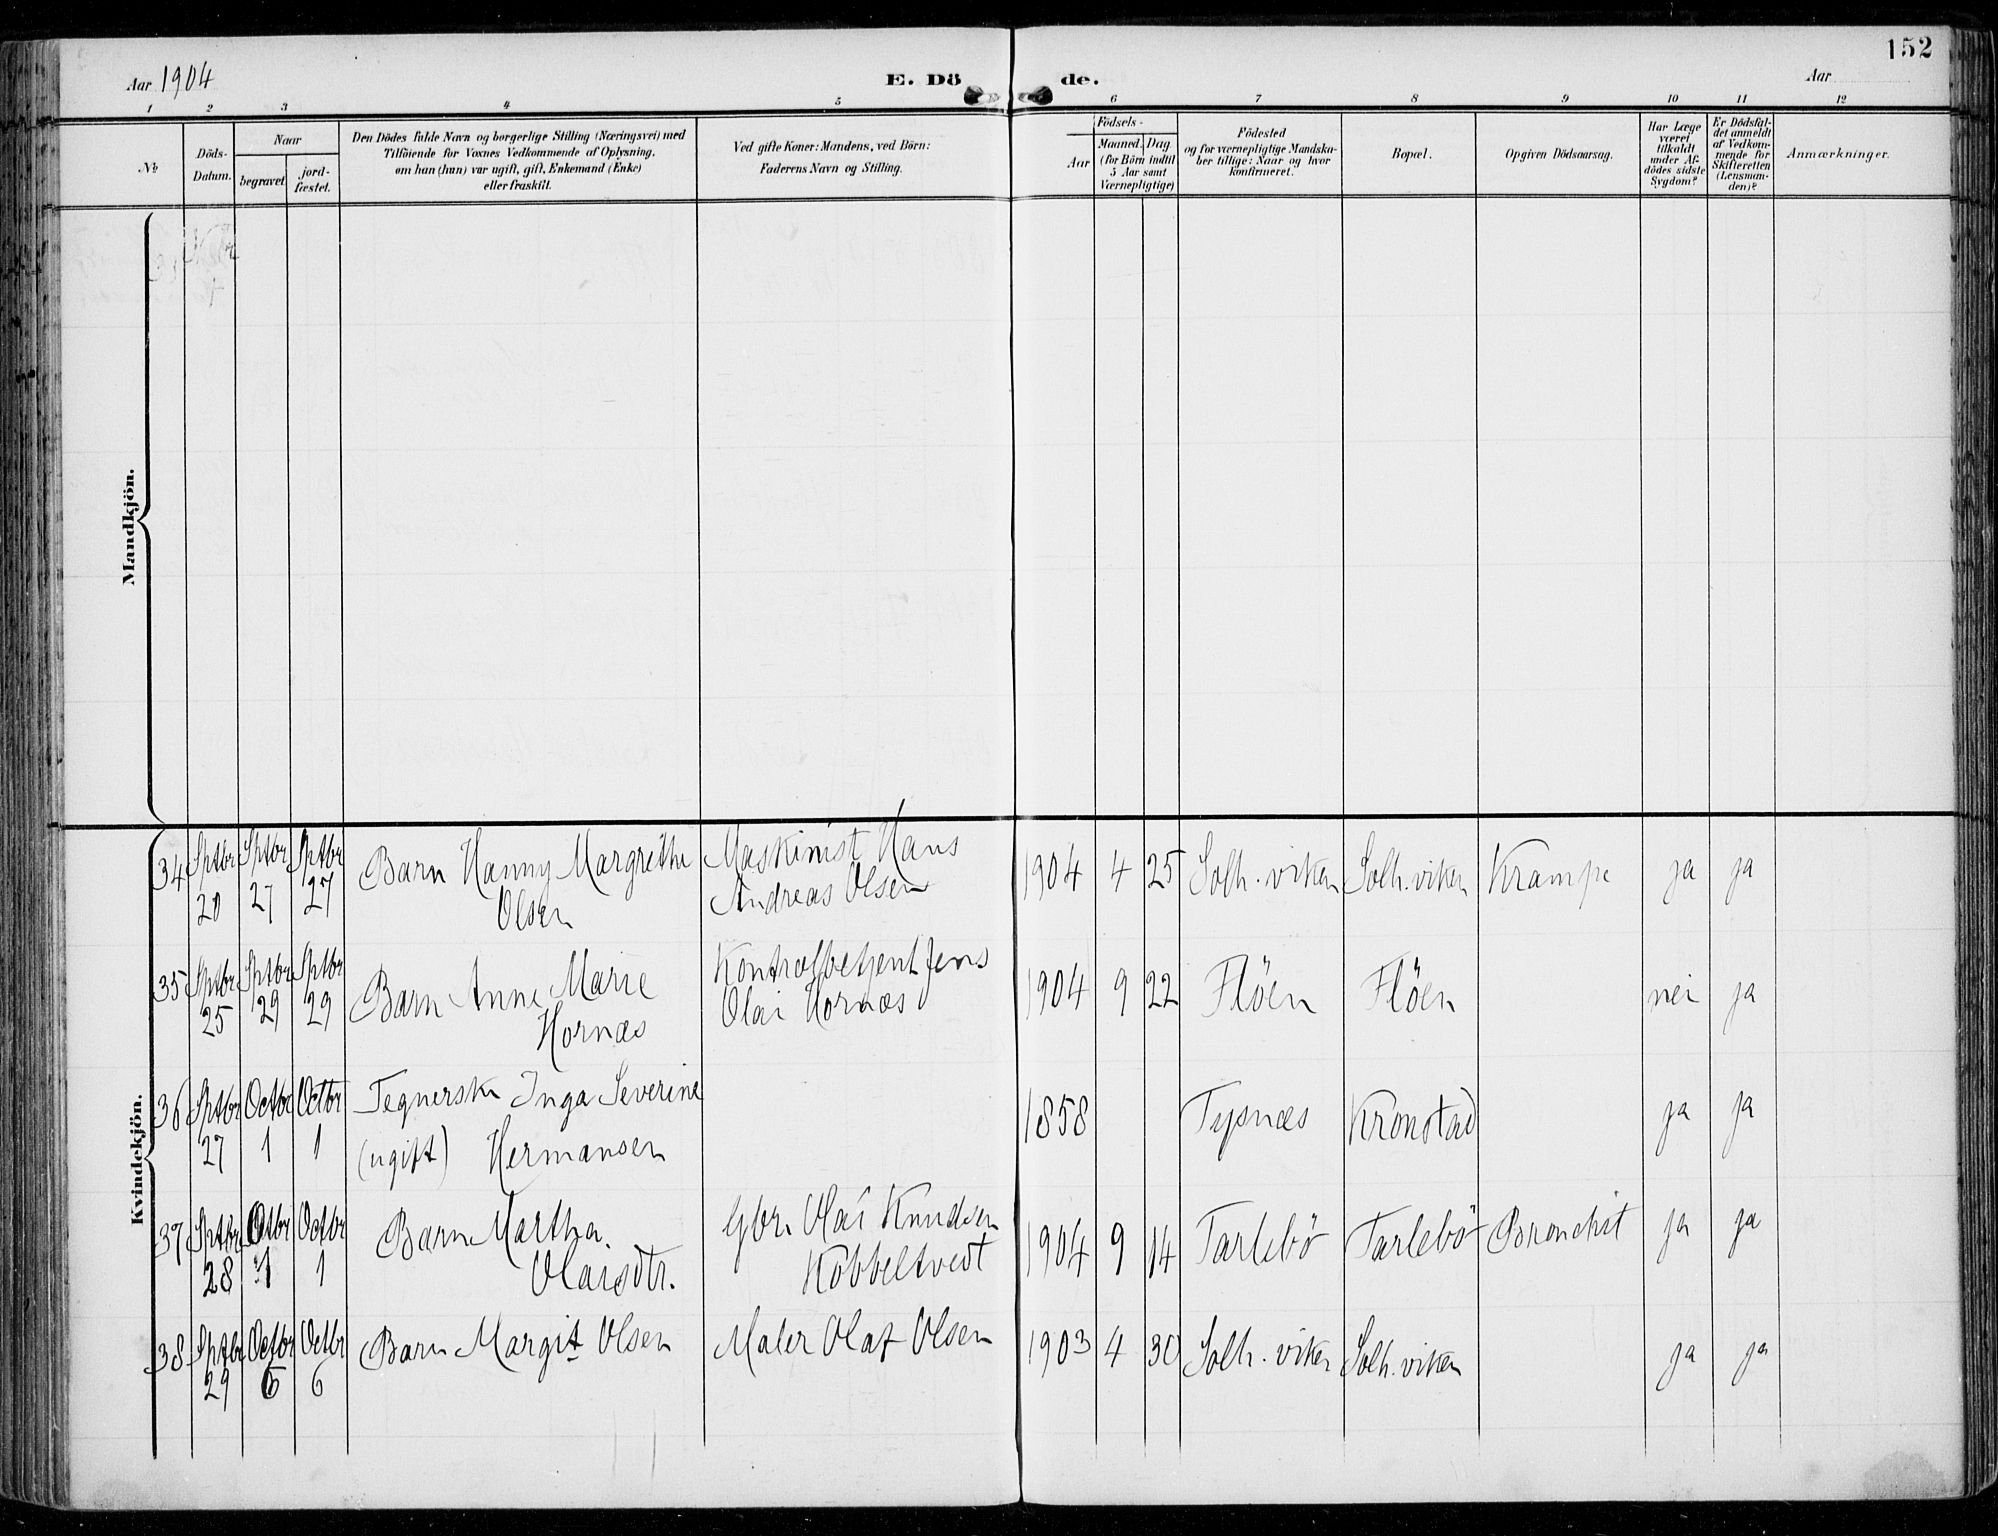 152
Aar 1904
E. Dö
de.
Aar
1 2 3 4 5 6 7 8 9 10 11 12
No
Döds-
Datum.
Naar
begravet.
jord-
fæstet.
Den Dödes fulde Navn og borgerlige Stilling (Næringsvei) med
Tilföiende for Voxnes Vedkommende af Oplysning.
om han (hun) var ugift, gift, Enkemand (Enke)
eller fraskilt.
Ved gifte Koner: Mandens, ved Börn:
Faderens Navn og Stilling.
Födsels-
Aar
Maaned. Dag.
(for Börn indtil
5 Aar samt
Værnepligtige)
Födested
og for værnepligtige Mandska-
ber tillige: Naar og hvor
konfirmeret.
Bopæl.
Opgiven Dödsaarsag.
Har Læge
været
tilkaldt
under Af-
dödes sidste
Sygdom?
Er Dödsfal-
det anmeldt
af Vedkom-
mende for
Skifteretten
(Lensman-
den)?
Anmærkninger.
Mandkjön.
Kvindekjön.
34 Sptbr 20 Sptbr 27 Sptbr 27 Barn Hanny Margrethe Olsen Maskinist Hans Andreas Olsen 1904 4 25 Solh.viken Solh.viken Krampe ja ja
35 Sptbr 25 Sptbr 29 Sptbr 29 Barn Anne Marie Hornæs Kontrolbetjent Jens Olai Hornæs 1904 9 22 Flöen Flöen nei ja
36 Sptbr 27 Octbr 1 Octbr 1 Tegnerske Inga Severine (ugift) Hermansen 1858 Tysnæs Kronstad ja ja
37 Sptbr 28 Otbr 1 Octbr 1 Barn Martha Olaisdtr. Gbr. Olai Knudsen Kobbeltvedt 1904 9 14 Tarlebö Tarlebö Bronchit ja ja
38 Sptbr 29 Octbr 6 Octbr 6 Barn Margit Olsen Maler Olaf Olsen 1903 4 30 Solh.viken Solh.viken ja ja